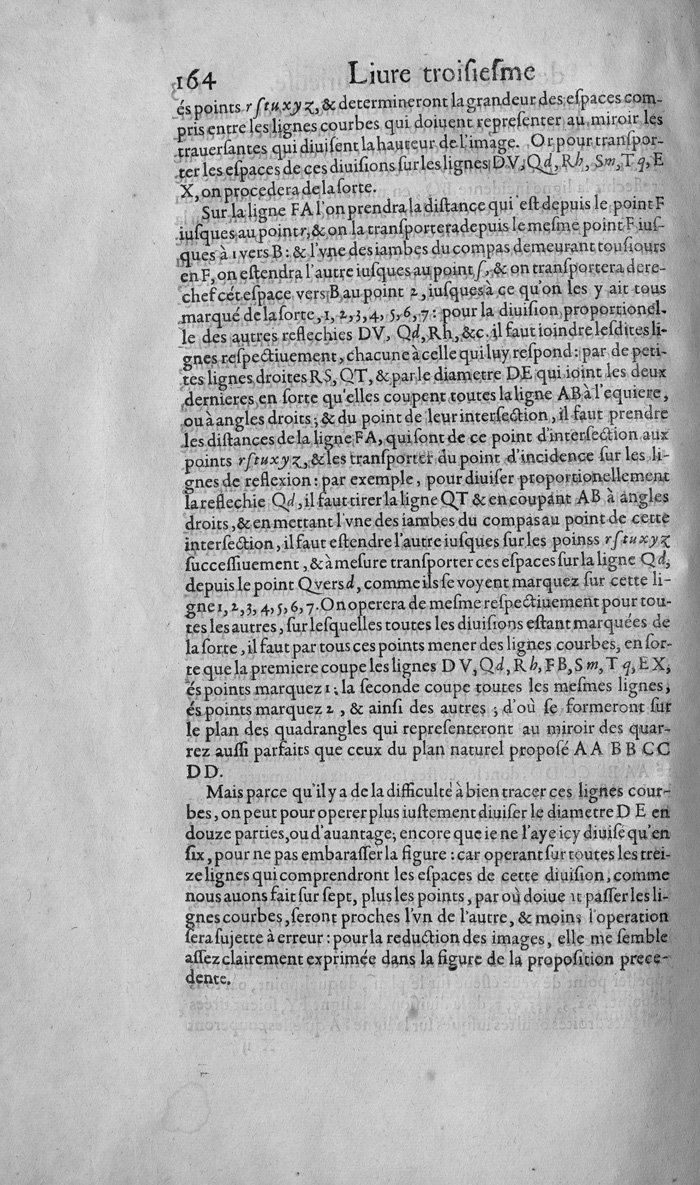 164 Liure troisiesme
és points rſtuxyz, & determineront la grandeur des eſpaces com-
pris entre les lignes courbes qui doiuent repreſenter au miroir les
trauerſantes qui diuiſent la hauteur de l'image. Or pour tranſpor-
ter les eſpaces de ces diuiſions ſur les lignes DV, Qd, Rh, Sm, Tq, E
X, on procedera de la ſorte.
Sur la ligne FA l'on prendra la diſtance qui eſt depuis le point F
iuſques au point r, & on la tranſportera depuis le meſme point F iuſ-
ques à 1 vers B: & l'vne des iambes du compas demeurant touſiours
en F, on eſtendra l'autre iuſques au point ſ, & on tranſportera dere-
chef cét eſpace vers B au point 2, iuſques à ce qu'on les y ait tous
marqué de la ſorte, 1, 2, 3, 4, 5, 6, 7: pour la diuiſion proportionel-
le des autres reflechies DV, Qd, Rh, &c. il faut ioindre leſdites li-
gnes reſpectiuement, chacune à celle qui luy reſpond: par de peti-
tes lignes droites RS, QT, & par le diametre DE qui ioint les deux
dernieres en ſorte qu'elles coupent toutes la ligne AB à l'equiere,
ou à angles droits; & du point de leur interſection, il faut prendre
les diſtances de la ligne FA, qui ſont de ce point d'interſection aux
points rſtuxyz, & les tranſporter du point d'incidence ſur les li-
gnes de reflexion: par exemple, pour diuiſer proportionellement
la reflechie Qd, il faut tirer la ligne QT & en coupant AB à angles
droits, & en mettant l'vne des iambes du compas au point de cette
interſection, il faut eſtendre l'autre iuſques ſur les poinss rſtuxyz
ſucceſſiuement, & à meſure tranſporter ces eſpaces ſur la ligne Qd,
depuis le point Q vers d, comme ils ſe voyent marquez ſur cette li-
gne 1, 2, 3, 4, 5, 6, 7. On operera de meſme reſpectiuement pour tou-
tes les autres, ſur leſquelles toutes les diuiſions eſtant marquées de
la ſorte, il faut par tous ces points mener des lignes courbes, en ſor-
te que la premiere coupe les lignes DV, Qd, Rh, FB, Sm, Tq, EX,
és points marquez 1; la ſeconde coupe toutes les meſmes lignes,
és points marquez 2, & ainſi des autres; d'où ſe formeront ſur
le plan des quadrangles qui repreſenteront au miroir des quar-
rez auſſi parfaits que ceux du plan naturel propoſé AA BB CC
DD.
Mais parce qu'il y a de la difficulté à bien tracer ces lignes cour-
bes, on peut pour operer plus iuſtement diuiſer le diametre DE en
douze parties, ou d'auantage; encore que ie ne l'aye icy diuiſé qu'en
ſix, pour ne pas embaraſſer la figure: car operant ſur toutes les trei-
ze lignes qui comprendront les eſpaces de cette diuiſion, comme
nous auons fait ſur ſept, plus les points, par où doiue nt paſſer les li-
gnes courbes, ſeront proches l'vn de l'autre, & moins l'operation
ſera ſujette à erreur: pour la reduction des images, elle me ſemble
aſſez clairement exprimée dans la figure de la propoſition prece-
dente.